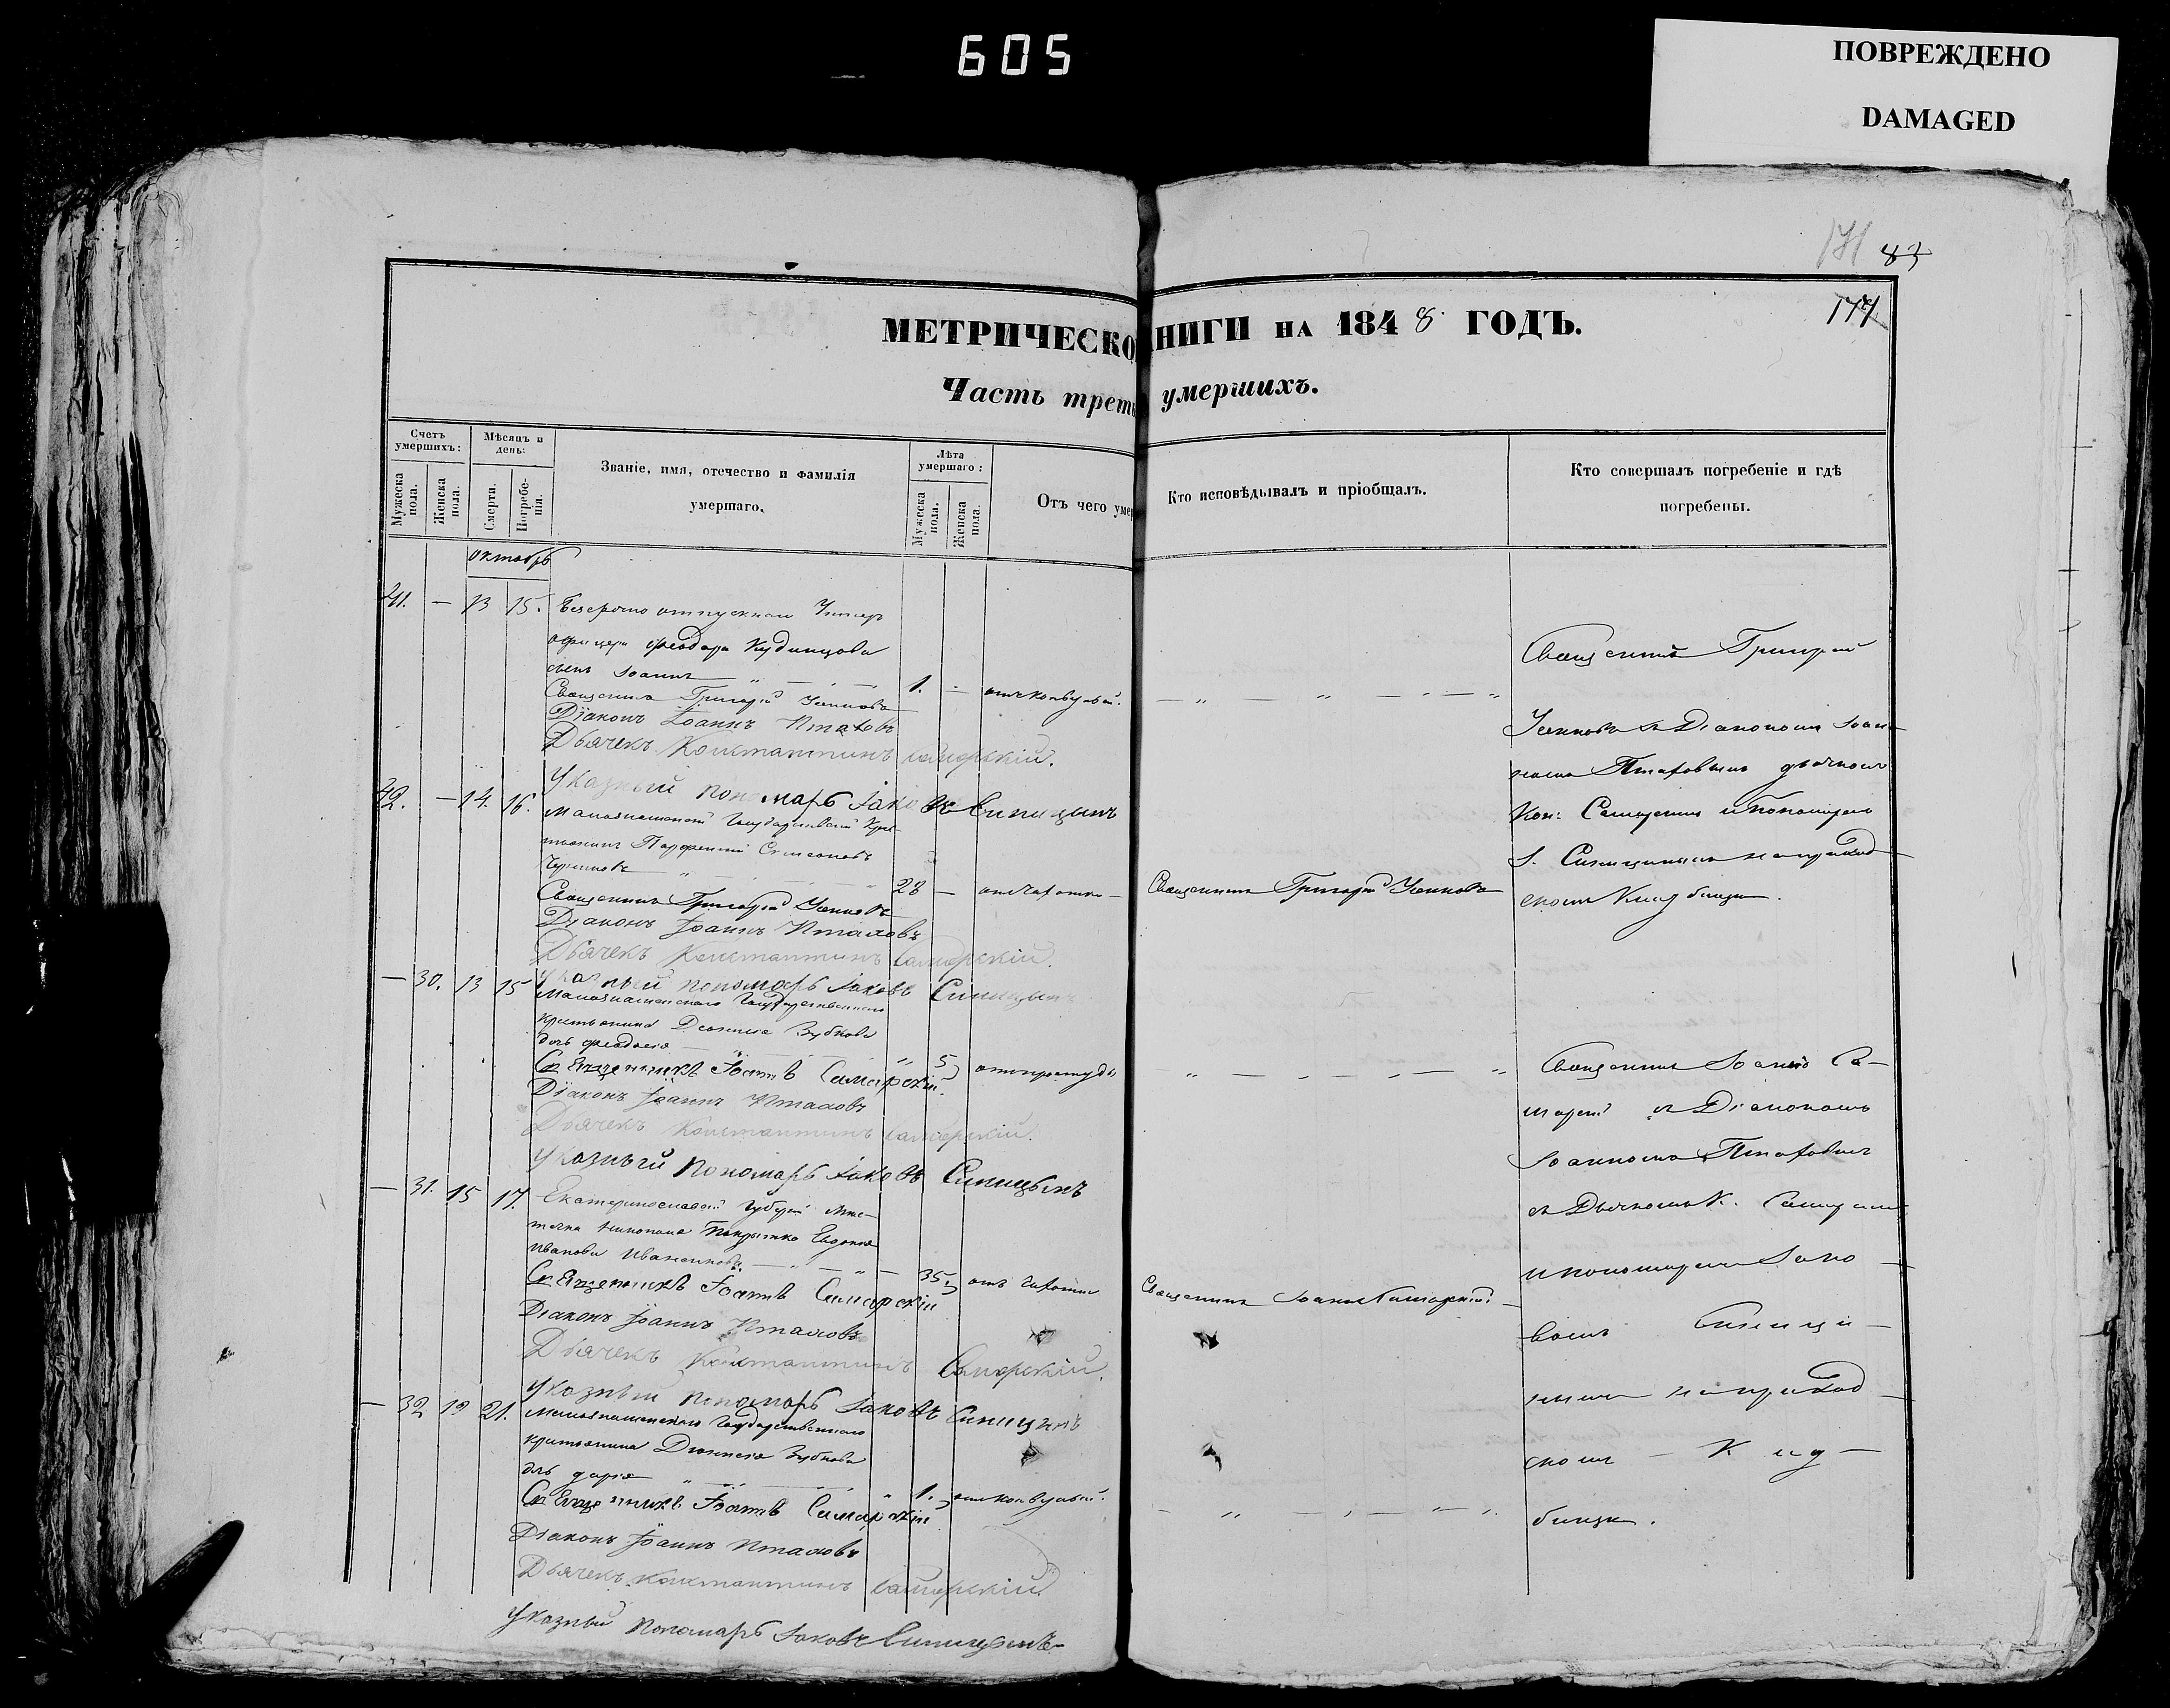 605
ПОВРЕЖДЕНО
DAMAGED
171 83
МЕТРИЧЕСКО НИГИ НА 1848 ГОДЪ.
177
Часть треть умершихъ.
Счетъ умершихъ:
Мужеска пола.
Женска пола.
Мѣсяцъ и день:
Смерти.
Погребенія.
Званіе, имя, отечество и фамилія
умершаго.
Лѣта умершаго:
Мужеска пола.
Женска пола.
Отъ чего умер
Кто исповѣдывалъ и пріобщалъ.
Кто совершалъ погребеніе и гдѣ
погребены.
октябрь
41. — 13 15. Безсрочно отпускнаго Унтеръ
офицера Феодора Кудинцова
сынъ Іоаннъ 1. — отъ конвульсій.
Священникъ Григорій
Діаконъ Іоаннъ Птаховъ
Дьячекъ Константинъ Самарскій.
Указный пономарь Іаковъ Синицынъ
42. — 14. 16. Государственный Крес-
тьянинъ Парфеній Симеоновъ
28 — отъ чахотки — Священникъ Григорій
Священникъ Григорій
Діаконъ Іоаннъ Птаховъ
Дьячекъ Константинъ Самарскій.
Указный пономарь Іаковъ Синицынъ
— 30. 13 15 Государственнаго
крестьянина Діонисія Зубкова
дочь Феодосія 5 отъ простуды
Священникъ Іоаннъ Самарскій.
Діаконъ Іоаннъ Птаховъ
Дьячекъ Константинъ Самарскій.
Указный пономарь Іаковъ Синицынъ
— 31. 15 17. Екатеринославской Губерніи мѣс-
течка Никополя Евдокія
Иванова 35 отъ чахотки Священникъ Іоаннъ Самарскій.
Священникъ Іоаннъ Самарскій
Діаконъ Іоаннъ Птаховъ
Дьячекъ Константинъ Самарскій.
Указный пономарь Іаковъ Синицынъ
— 32 19 21. Государственнаго
крестьянина Діонисія Зубкова
дочь Дарія 1. отъ конвульсій.
Священникъ Іоаннъ Самарскій
Діаконъ Іоаннъ Птаховъ
Дьячекъ Константинъ Самарскій
Указный пономарь Іаковъ Синицынъ
Священникъ Григорій
съ Діакономъ Іоан-
номъ Птаховымъ дьячкомъ
Кон: Самарскимъ и Пономаремъ
І. Синицынымъ на приход-
скомъ Кладбищѣ.
Священникъ Іоаннъ Са-
марскій съ Діакономъ
Іоанномъ Птаховымъ
съ Дьячкомъ К. Самарским
и пономаремъ Іако-
вомъ Синици-
нымъ на приход-
скомъ — Клад-
бищѣ.